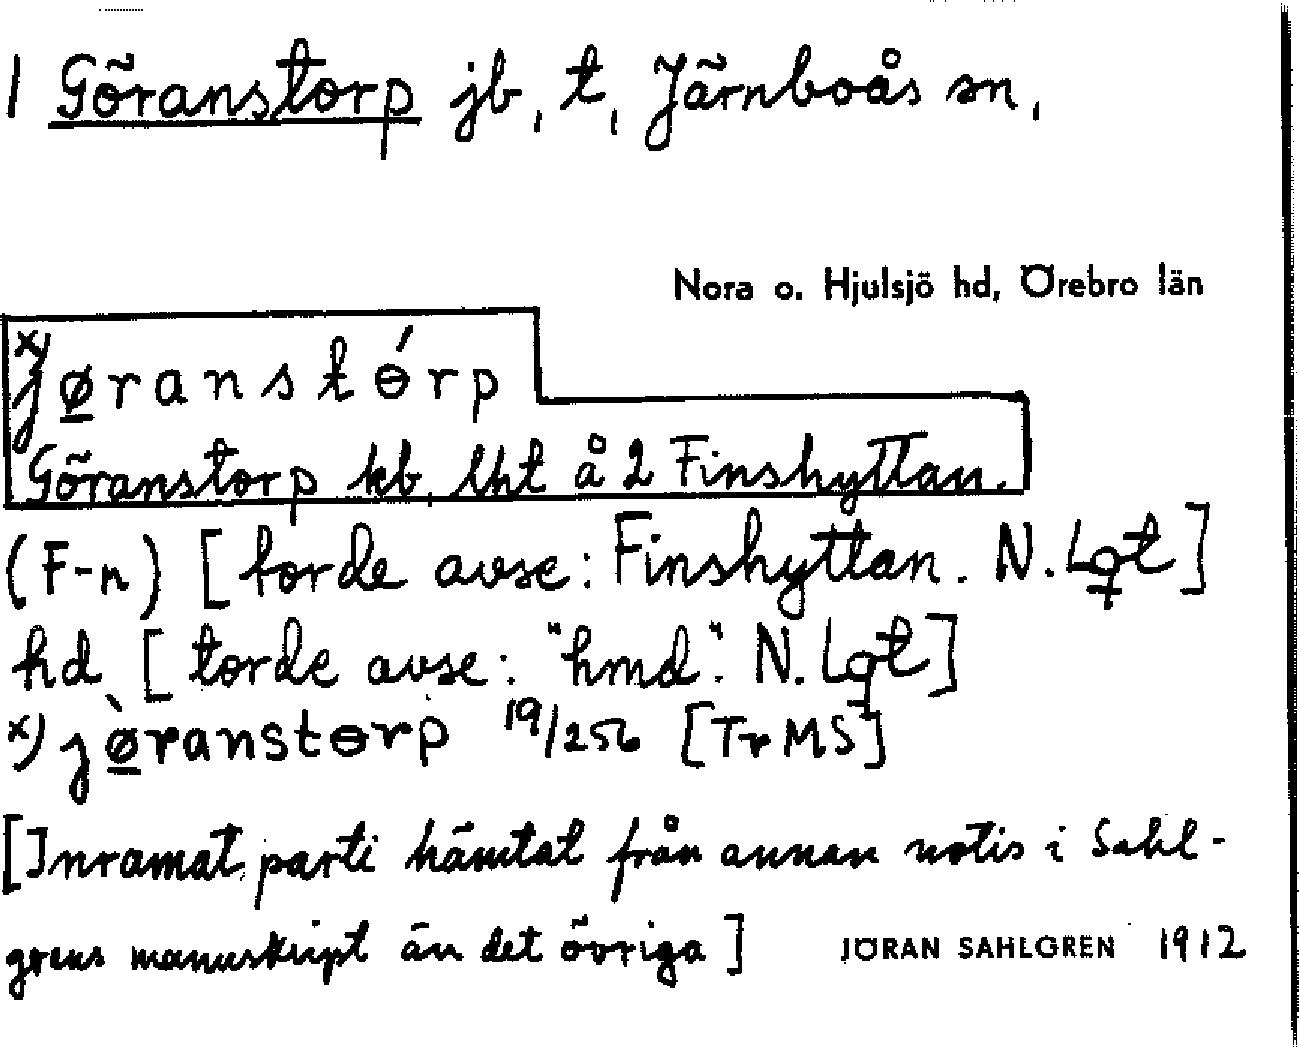 1 Göranstorp jb, t, Järnboås sn,
Nora o. Hjulsjö hd, Örebro län
x) jø̲ranstɵ́rp
Göranstorp kb, lht å 2 Finshyttan.
(F-n) [torde avse: Finshyttan. N. Lgt]
hd [torde avse: "hmd". N. Lgt]
x) jø̲̀ranstɵrp 19/256 [Tr MS]
[Inramat parti hämtat från annan notis i Sahl-
grens manuskript än det övriga] JÖRAN SAHLGREN 1912